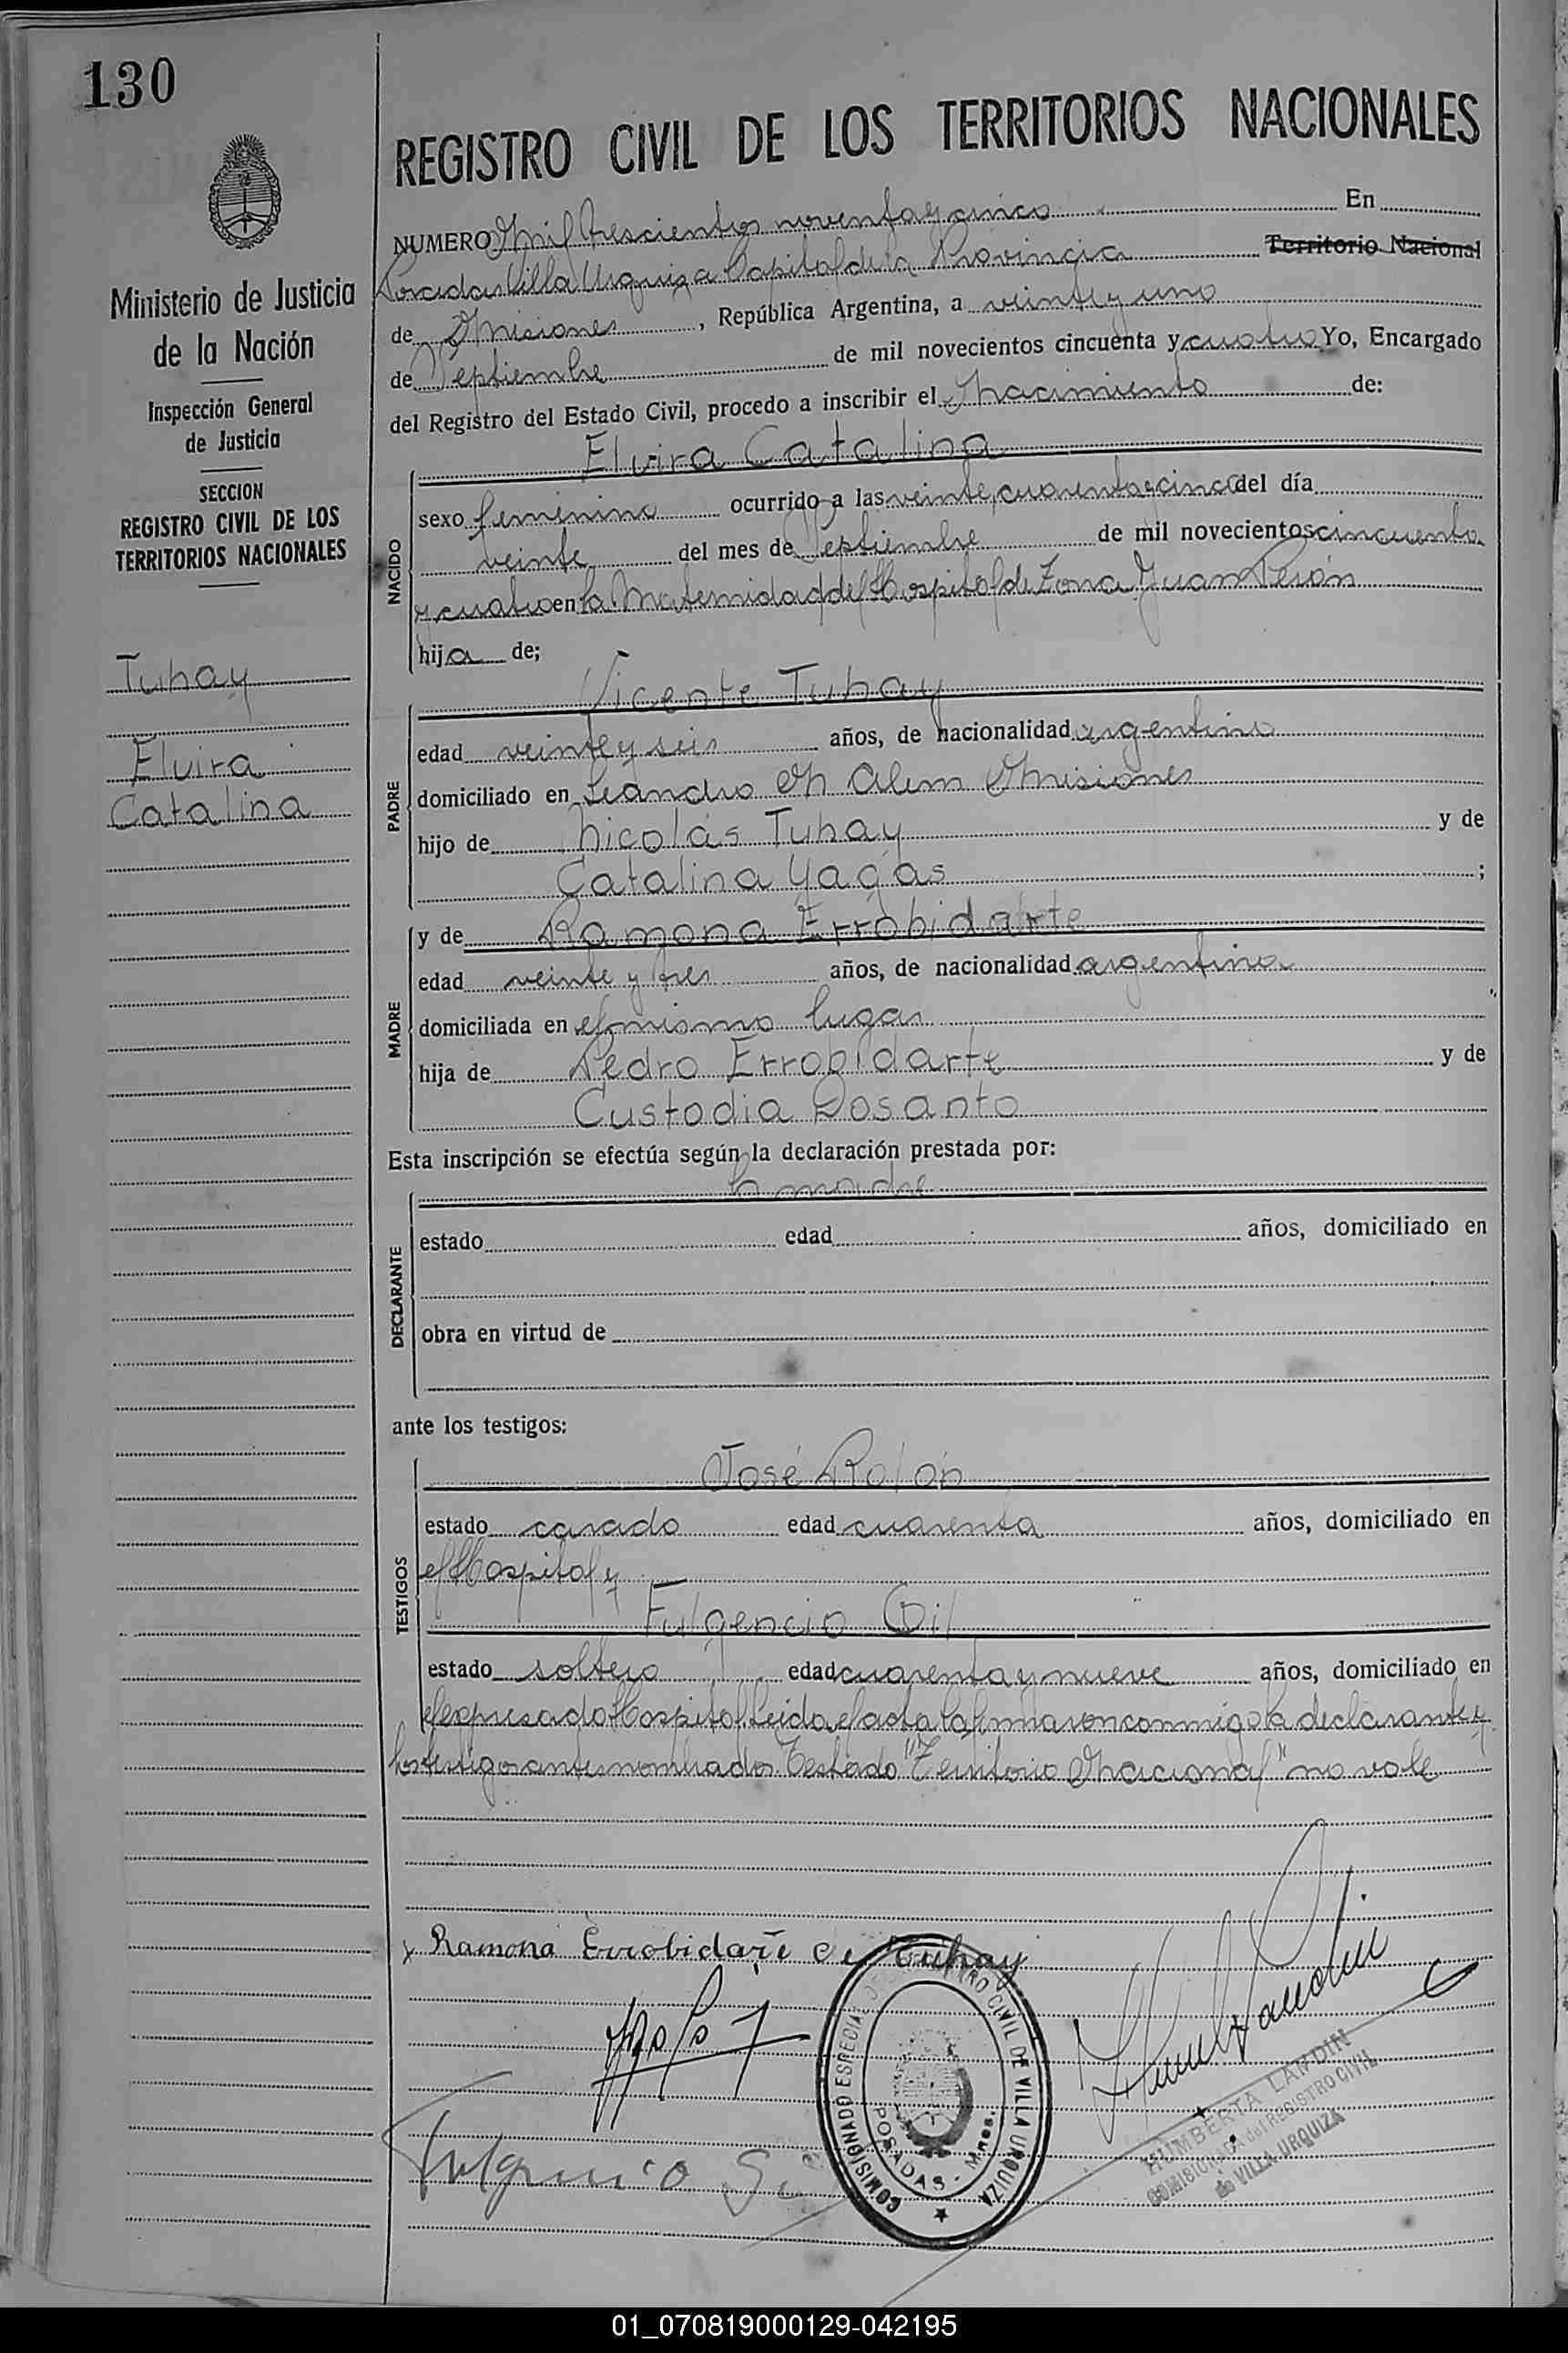 130
Ministerio de Justicia
de la Nación
Inspección General
de Justicia
SECCION
REGISTRO CIVIL DE LOS
TERRITORIOS NACIONALES
Tuhay
Elvira
Catalina
REGISTRO CIVIL DE LOS TERRITORIOS NACIONALES
NUMERO Mil trescientos noventa y cinco En
Posadas Villa Urquiza Capital de la Provincia Territorio Nacional
de Misiones, República Argentina, a veinte y uno
de Septiembre de mil novecientos cincuenta y cuatro Yo, Encargado
del Registro del Estado Civil, procedo a inscribir el Nacimiento de:
NACIDO
Elvira Catalina
sexo femenino ocurrido a las veinte, cuarenta y cinco del día
veinte del mes de Septiembre de mil novecientos cincuenta
y cuatro en la Maternidad del Hospital de Zona Juan Perón
hija de;
PADRE
Vicente Tuhay
edad veinte y seis años, de nacionalidad argentino
domiciliado en Leandro N Alem Misiones
hijo de Nicolás Tuhay y de
Catalina Yagas;
MADRE
y de Ramona Errobidarte
edad veinte y tres años, de nacionalidad argentina
domiciliada en el mismo lugar
hija de Pedro Errobidarte y de
Custodia Dosanto
Esta inscripción se efectúa según la declaración prestada por:
DECLARANTE
la madre
estado edad años, domiciliado en
obra en virtud de
ante los testigos:
TESTIGOS
José Rolón
estado casado edad cuarenta años, domiciliado en
el Hospital y
Fulgencio Gil
estado soltero edad cuarenta y nueve años, domiciliado en
el expresado Hospital. Leida el acta la firmaron conmigo la declarante y
los testigos antes nombrados. Testado "Territorio Nacional" no vale
x Ramona Errobidarte de Tuhay
Fulgencio Gil
COMISIONADO ESPECIAL DEL REGISTRO CIVIL DE VILLA URQUIZA
POSADAS - Mnes.
HUMBERTA LANDIN
COMISIONADA del REGISTRO CIVIL
de VILLA URQUIZA
01_070819000129-042195